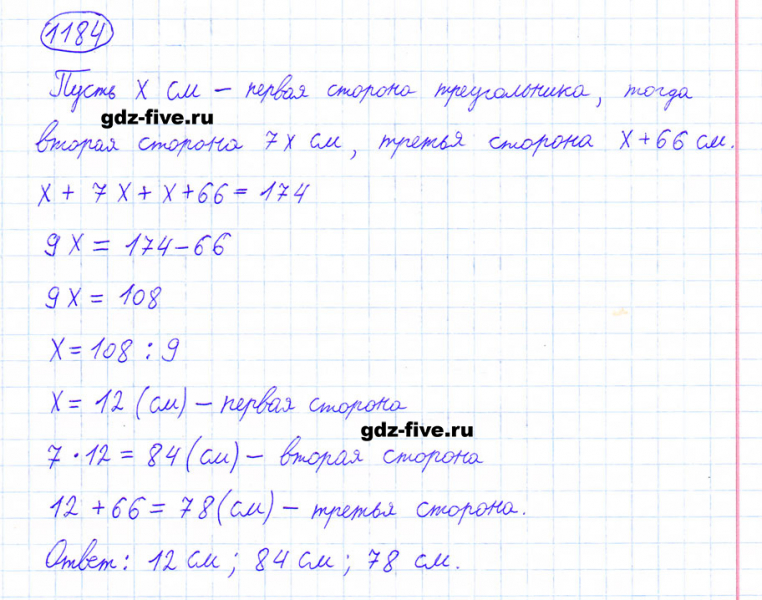 1184
Пусть х см – первая сторона треугольника, тогда
gdz-five.ru
вторая сторона 7х см, третья сторона х+66 см.
х + 7х + х + 66 = 174
9х = 174 – 66
9х = 108
х = 108 : 9
х = 12 (см) – первая сторона
gdz-five.ru
7 · 12 = 84 (см) – вторая сторона
12 + 66 = 78 (см) – третья сторона.
Ответ: 12 см; 84 см; 78 см.